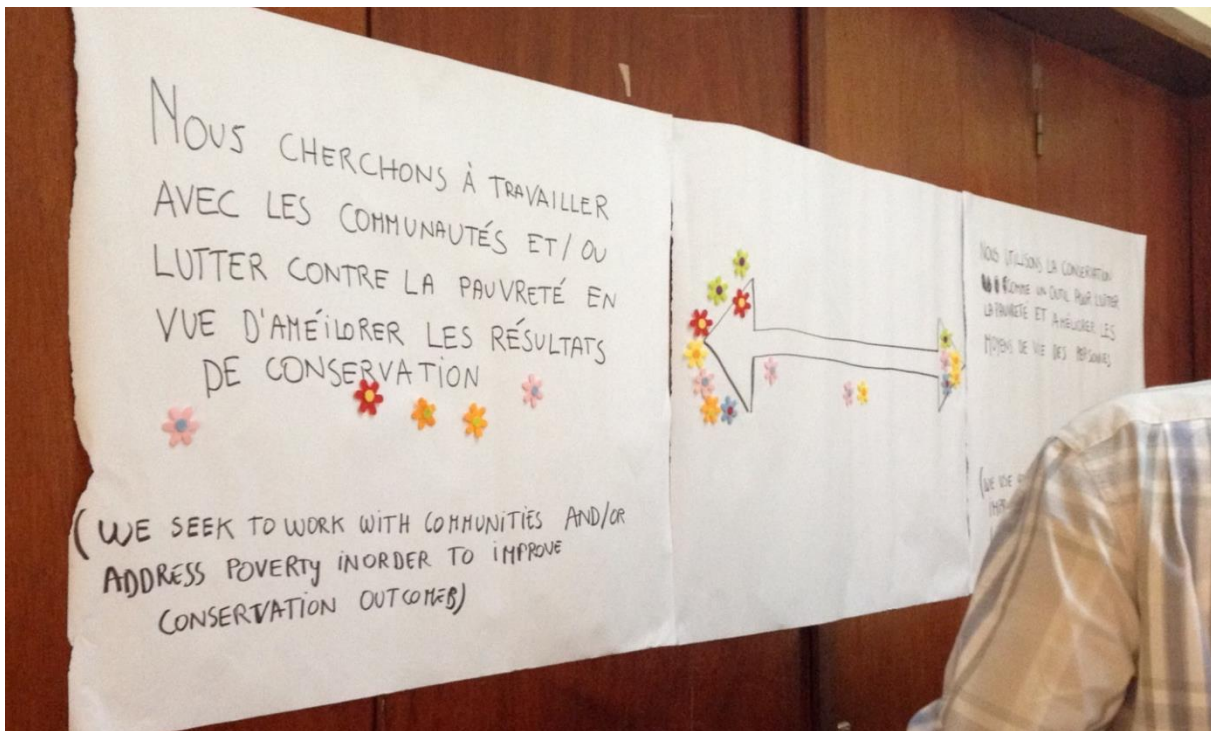 NOUS CHERCHONS À TRAVAILLER
AVEC LES COMMUNAUTÉS ET/OU
LUTTER CONTRE LA PAUVRETÉ EN
VUE D'AMÉILORER LES RÉSULTATS
DE CONSERVATION
(WE SEEK TO WORK WITH COMMUNITIES AND/OR
ADDRESS POVERTY INORDER TO IMPROVE
CONSERVATION OUTCOMES)
NOUS UTILISONS LA CONSERVATION
COMME UN OUTIL POUR LUTTER
LA PAUVRETÉ ET AMÉLIORER LES
MOYENS DE VIE DES PERSONNES
(WE USE